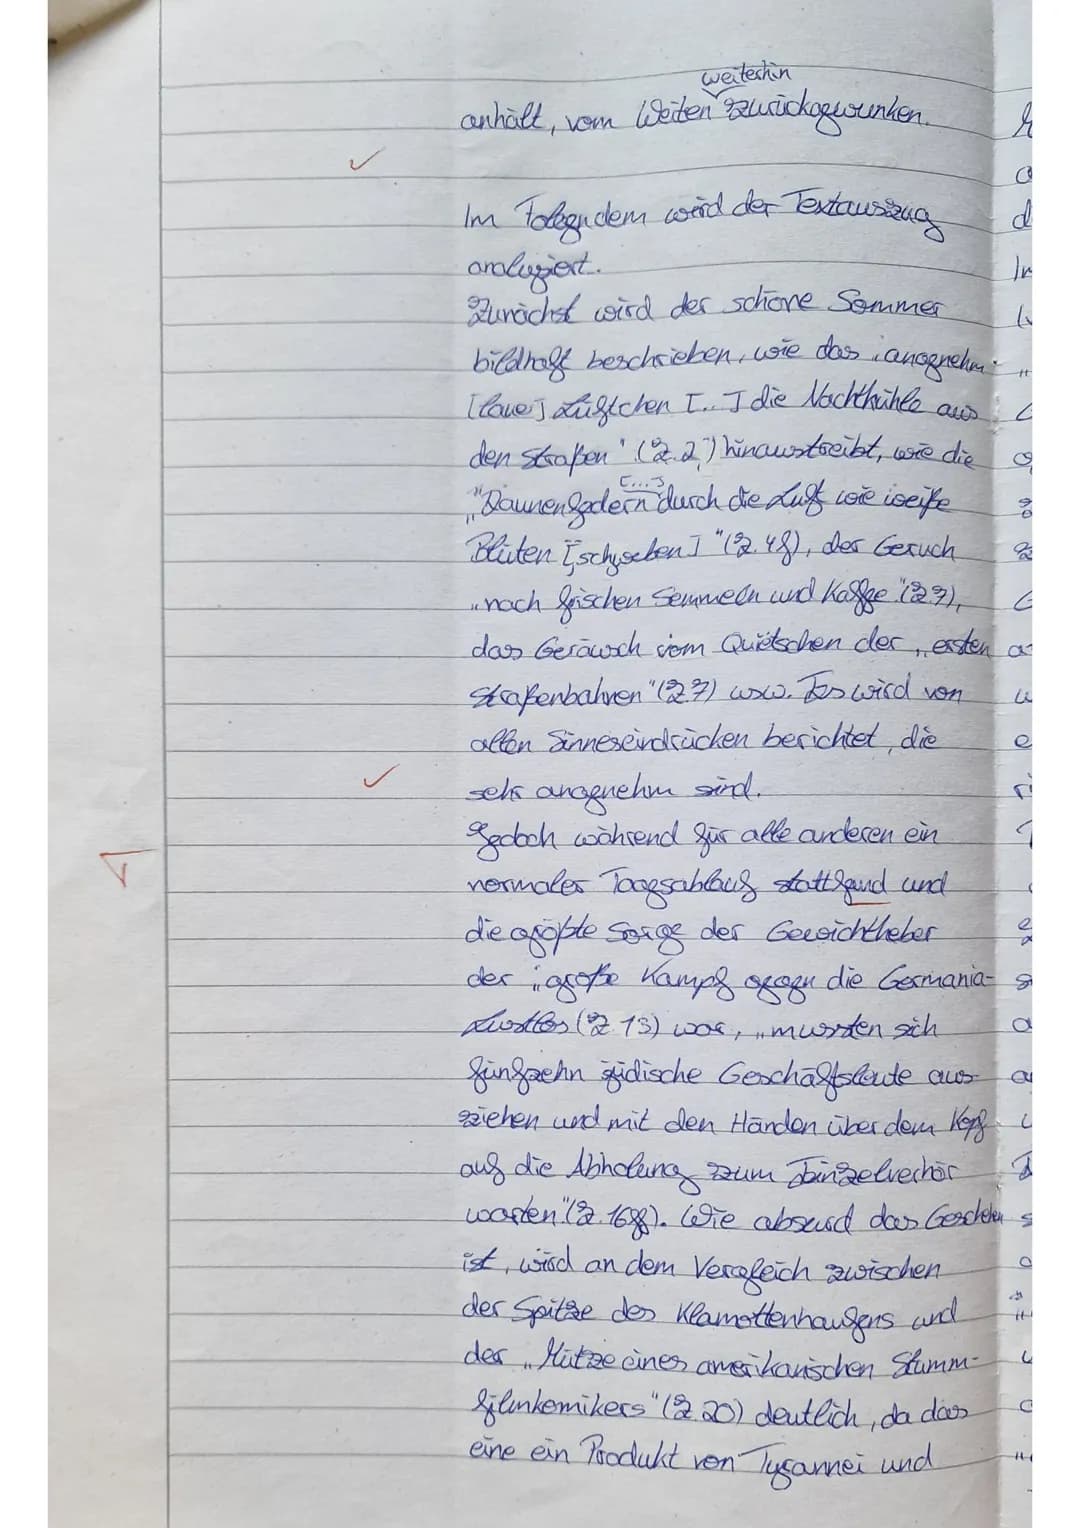 weiterhin
anhält, vom Weiten zurückgewunken.
Im Folegndem wird der Textauszug
analysiert.
Zunächst wird der schöne Sommer
bildhaft beschrieben, wie das „angenehm
[laue] Lüftchen [...] die Nachtkühle aus
den Straßen" (Z.2) hinaustreibt, wie die
[...]
„Daunenfedern durch die Luft wie weiße
Blüten [schweben]" (Z.4f), der Geruch
„nach frischen Semmeln und Kaffee" (Z7),
das Geräusch vom Quietschen der „ersten
Straßenbahnen" (Z7) usw. Es wird von
allen Sinneseindrücken berichtet, die
sehr angenehm sind.
Jedoch während für alle anderen ein
normaler Tagesablauf stattfand und
die größte Sorge der Gewichtheber
der „große Kampf gegen die Germania-
(Z.13) war, „mussten sich
fünfzehn jüdische Geschäftsleute aus-
ziehen und mit den Händen über dem Kopf
auf die Abholung zum Einzelverhör
warten" (Z.16ff). Wie absurd das Geschehen
ist, wird an dem Vergleich zwischen
der Spitze des Klamottenhaufens und
der „Mütze eines amerikanischen Stumm-
filmkomikers" (Z.20) deutlich, da das
eine ein Produkt von Tyrannei und